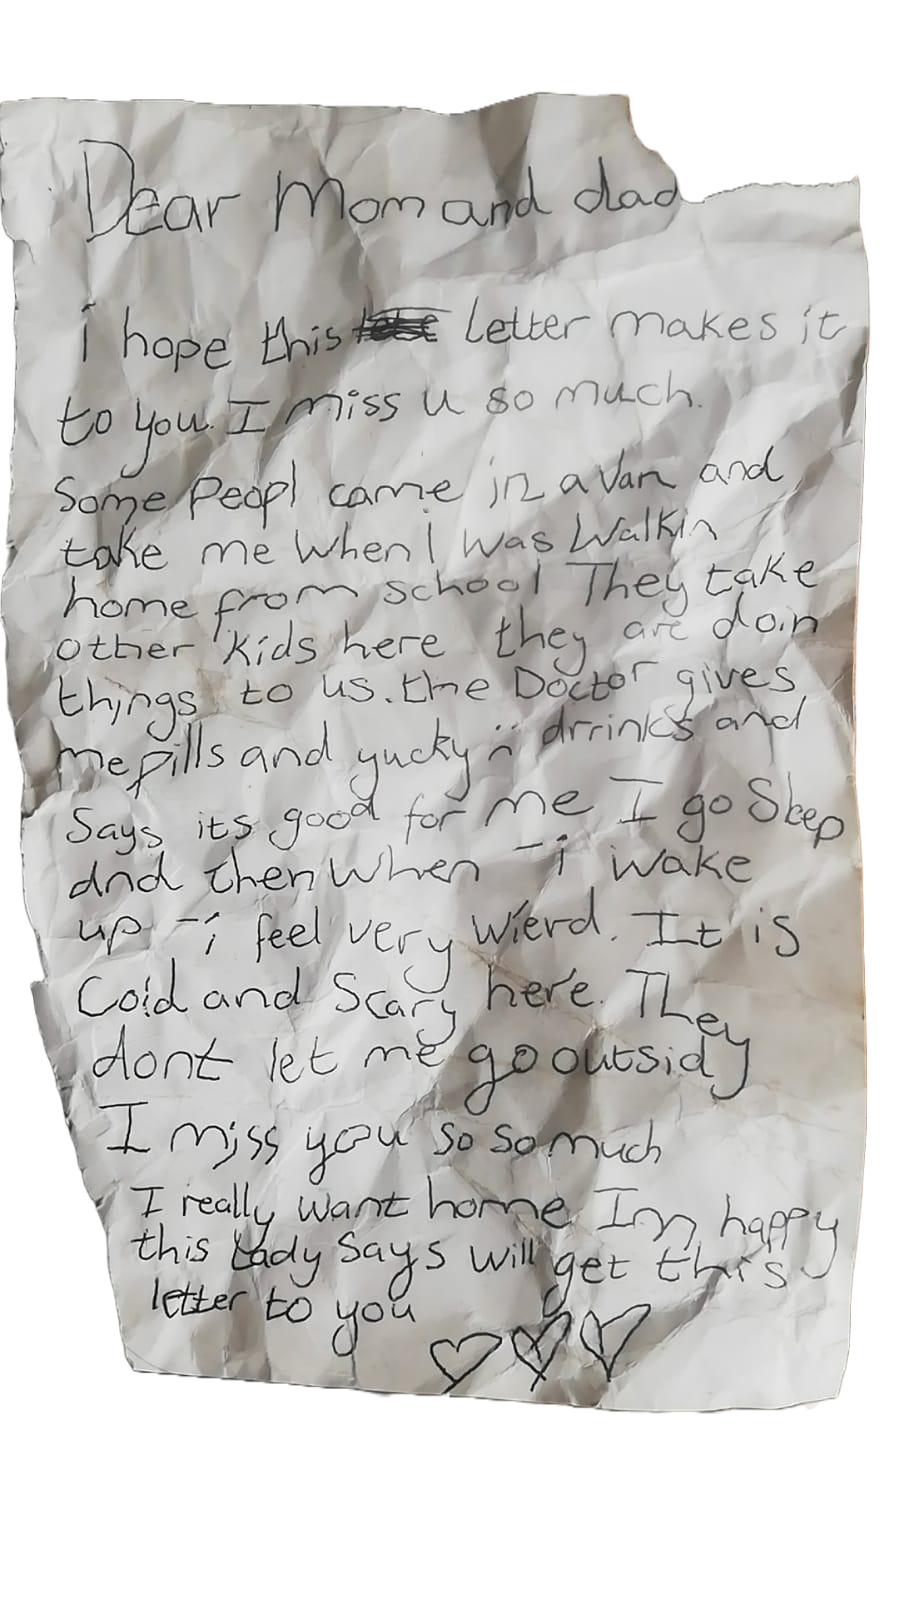 Dear Mom and dad
i hope this letter makes it
to you. I miss u so much.
Some Peopl came in a Van and
take me when I was Walkin
home from school They take
other kids here they are doin
things to us. the Doctor gives
me pills and yucky drrinks and
Says its good for me I go Sleep
and then when i wake
up i feel very wierd. It is
Cold and Scary here. They
dont let me go outsidy
I miss you so so much
I really want home Im happy
this Lady Says will get this
letter to you